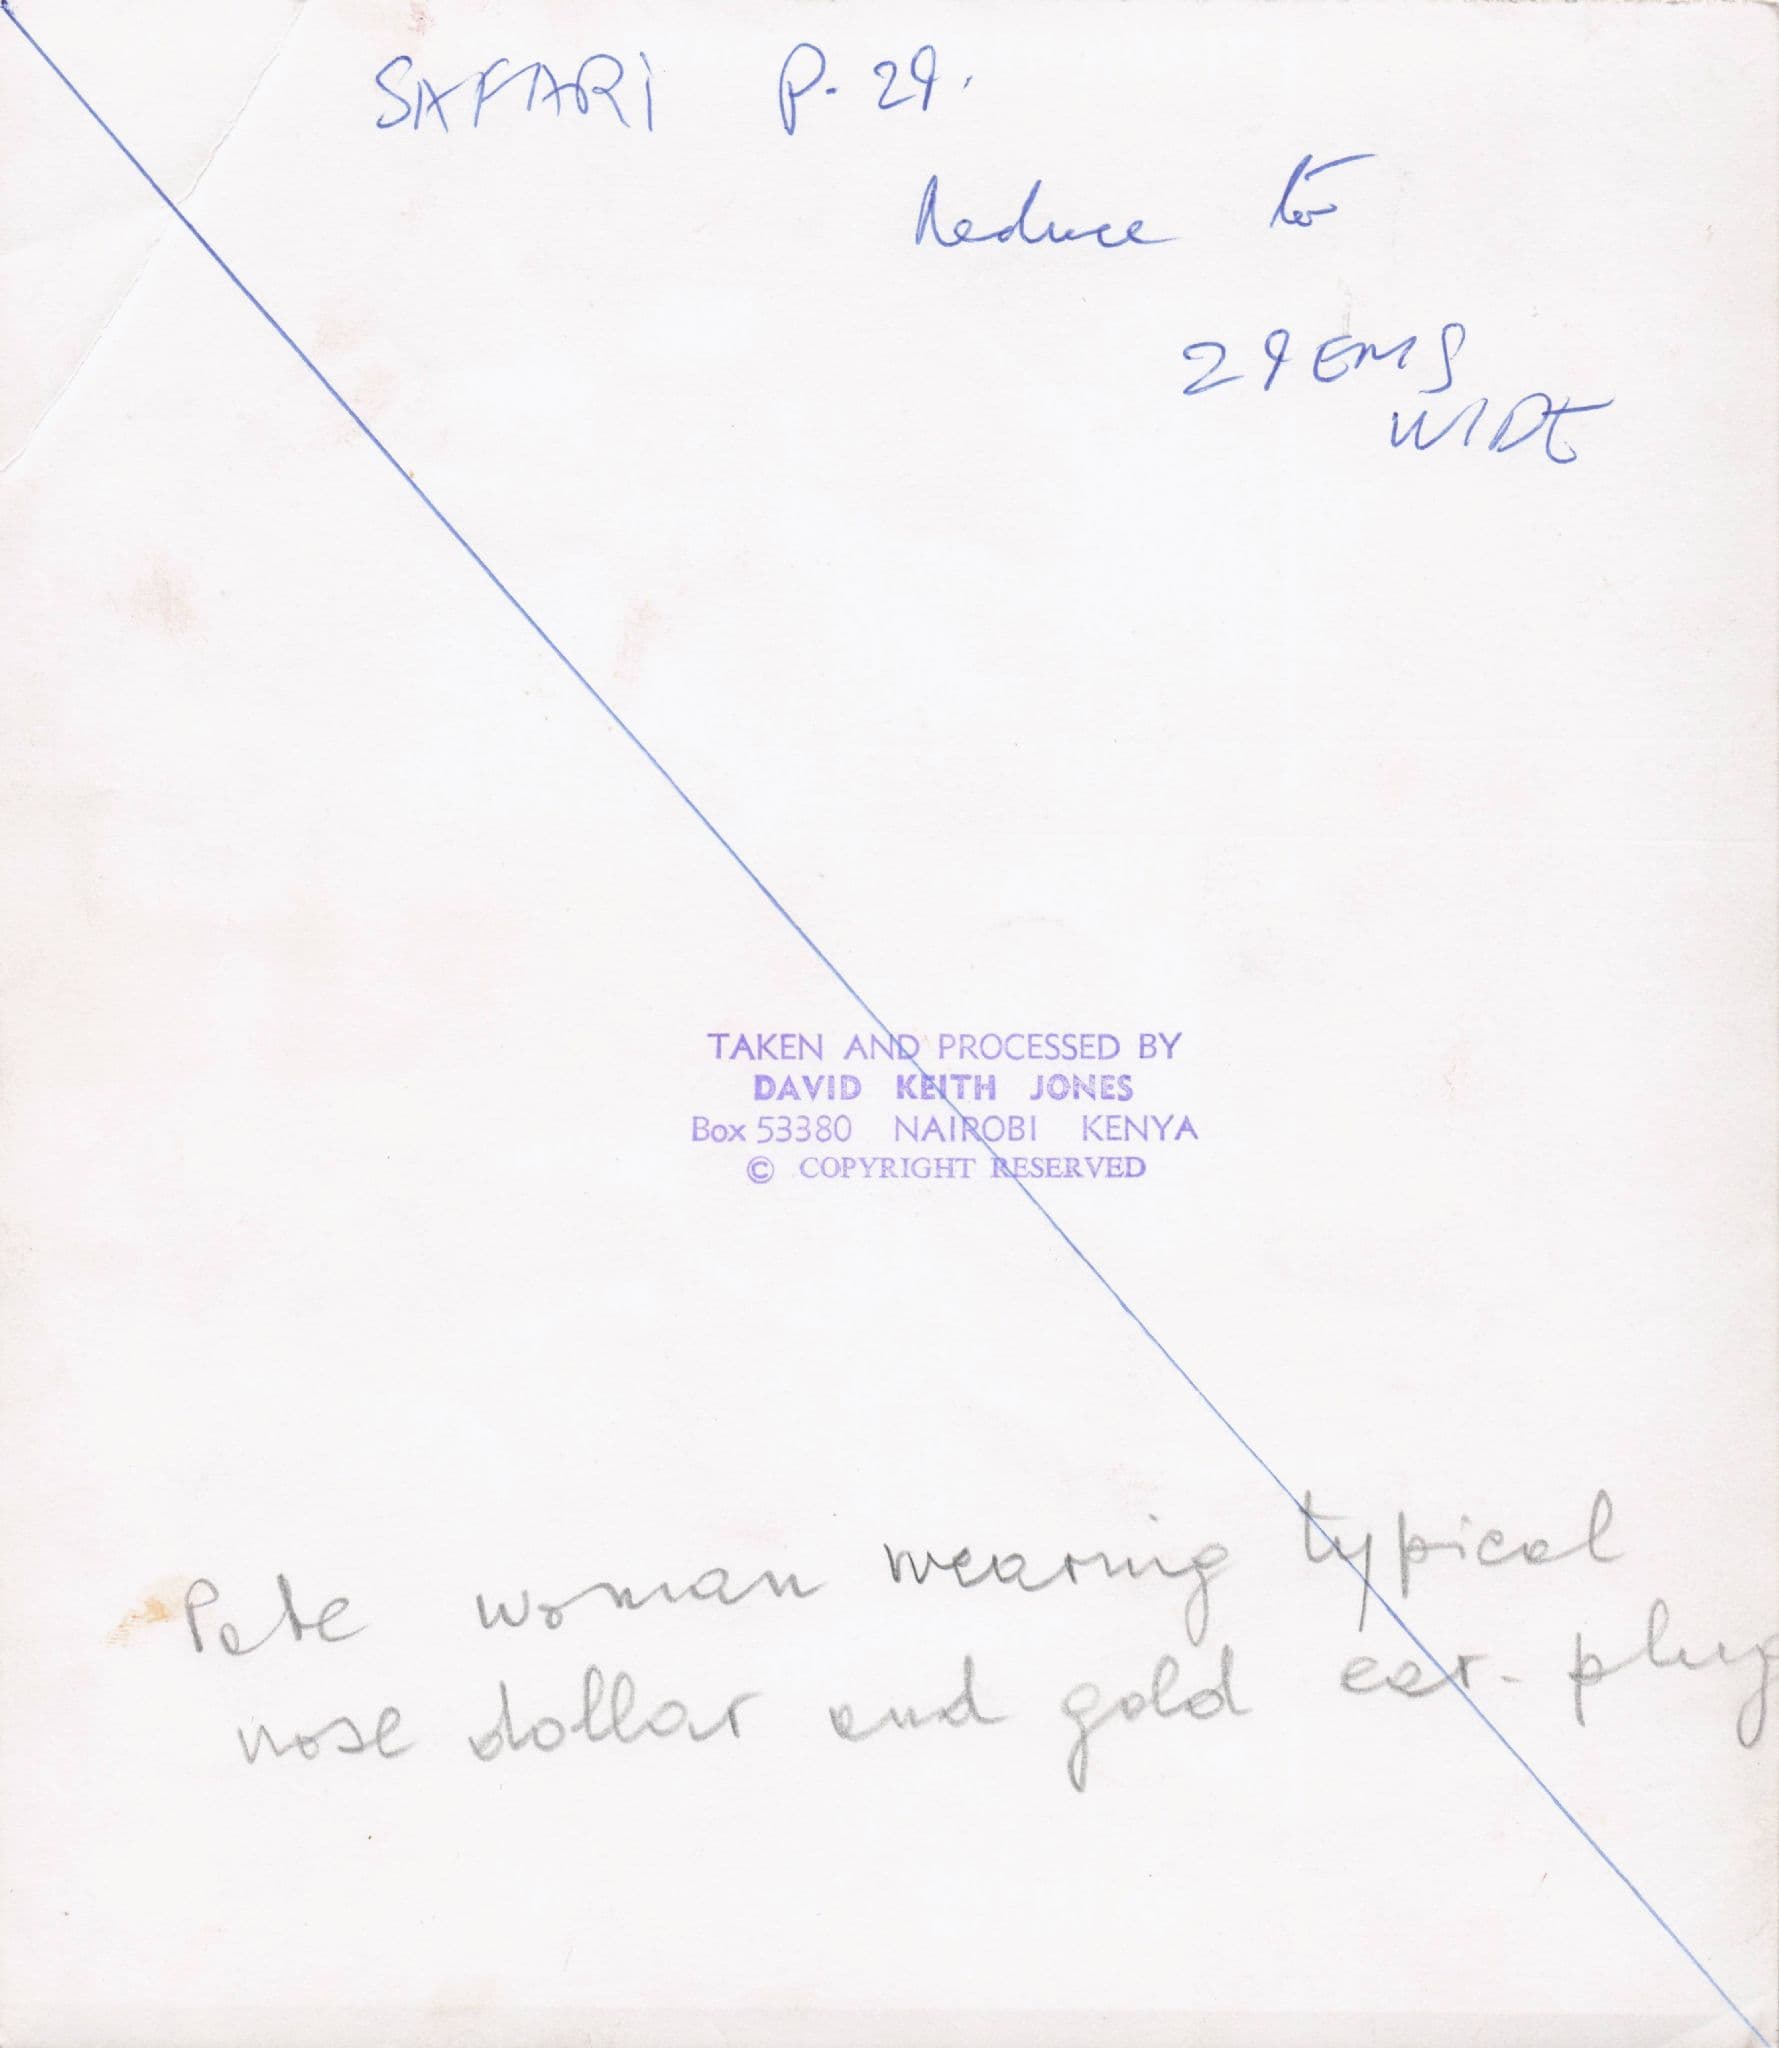 SAFARI P. 29.
Reduce to
29 EMS
WIDE
TAKEN AND PROCESSED BY
DAVID KEITH JONES
Box 53380 NAIROBI KENYA
© COPYRIGHT RESERVED
Pate woman wearing typical
nose dollar and gold ear-plug